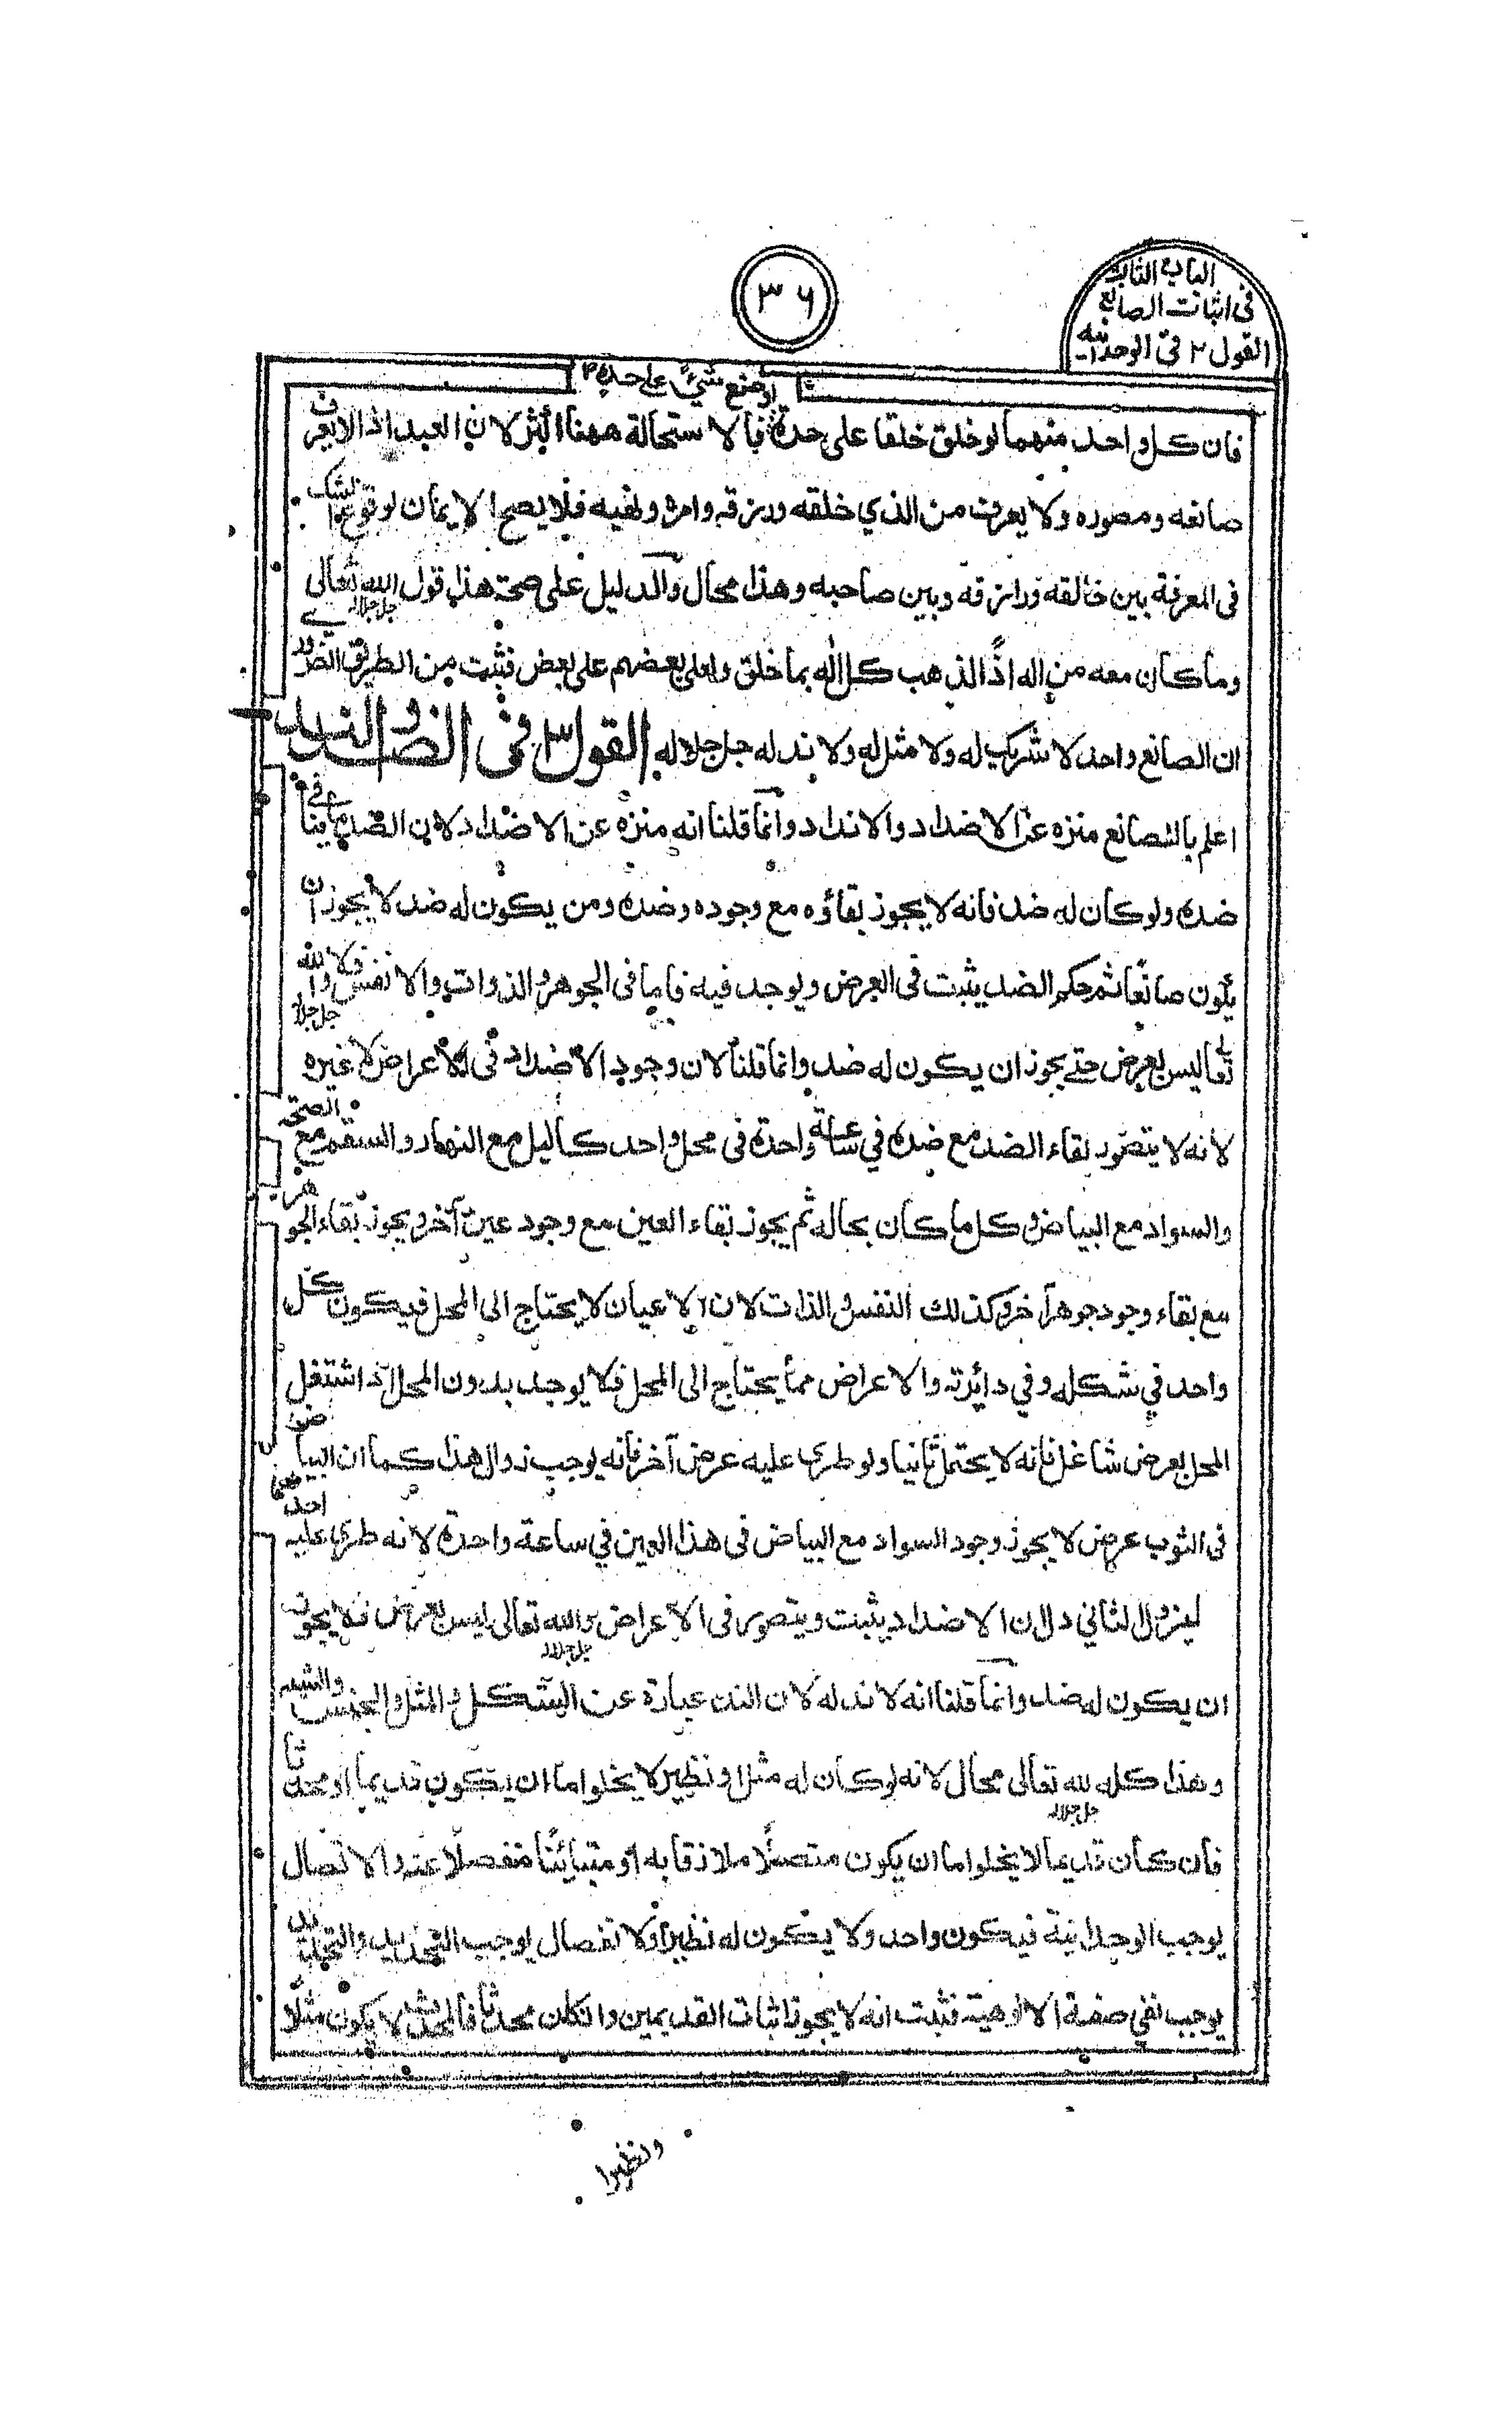 الباب الثالث
فى اثبات الصانع
القول ٢ فى الوحدانية
٣٦
او صنع شئ على حدة
فان كل واحد منهما لو خلق خلقا على حدة فالاستحالة ههنا اكثر لان العبد اذا لا يعرف
صانعه ومصوره ولا يعرف من الذي خلقه ورزقه وامره ونهيه فلا يصح الايمان لوقوع الشك
فى المعرفة بين خالقه ورازقه وبين صاحبه وهذا محال والدليل على صحة هذا قول الله تعالى جل جلاله
وما كان معه من اله اذًا لذهب كل اله بما خلق ولعلى بعضهم على بعض فثبت من الطريق الضرورى
ان الصانع واحد لا شريك له ولا مثل له ولا ند له جل جلاله القول ٣ فى الضد والند
اعلم بان الصانع منزه عن الاضداد والانداد وانما قلنا انه منزه عن الاضداد لان الضد ما ينافى
ضده ولو كان له ضد فانه لا يجوز بقاؤه مع وجوده وضده ومن يكون له ضد لا يجوز ان
يكون صانعًا ثم حكم الضد يثبت فى العرض ويوجد فيه فاما فى الجوهر والذوات والانفس فلا والله جل جلاله
تعالى ليس بعرض حتى يجوز ان يكون له ضد وانما قلنا لان وجود الاضداد فى الاعراض لا غيره
لانه لا يتصور بقاء الضد مع ضده في ساعة واحدة فى محل واحد كالليل مع النهار والسقم مع الصحة
والسواد مع البياض وكل ما كان بحاله ثم يجوز بقاء العين مع وجود عين آخر ويجوز بقاء الجوهر
مع بقاء وجود جوهر آخر وكذلك النفس والذات لان الاعيان لا يحتاج الى المحل فيكون كل
واحد في شكله وفي دائرته والاعراض مما يحتاج الى المحل فلا يوجد بدون المحل اذا اشتغل
المحل بعرض شاغل فانه لا يحتمل ثانيا ولو طرى عليه عرض آخر فانه يوجب زوال هذا كما ان البياض
فى الثوب عرض لا يجوز وجود السواد مع البياض فى هذا العين في ساعة واحدة لانه طرى عليه احدهما
ليزول الثاني دل ان الاضداد يثبت ويتصور فى الاعراض والله تعالى جل جلاله ليس بعرض فلا يجوز
ان يكون له ضد وانما قلنا انه لا ند له لان الند عبارة عن الشكل والمثل والجنس والشبيه
وهذا كله لله تعالى جل جلاله محال لانه لو كان له مثل او نظير لا يخلوا اما ان يكون قديما او محدثا
فان كان قديما لا يخلوا اما ان يكون متصلًا ملازقا به او متبائنًا منفصلًا عنه والاتصال
يوجب الوحدانية فيكون واحد ولا يكون له نظيرًا والانفصال يوجب التحديد والتحديد
يوجب نفي صفة الالوهية فثبت انه لا يجوز اثبات القديمين وانكان محدثا فالمحدث لا يكون مثلًا
ونظيرا